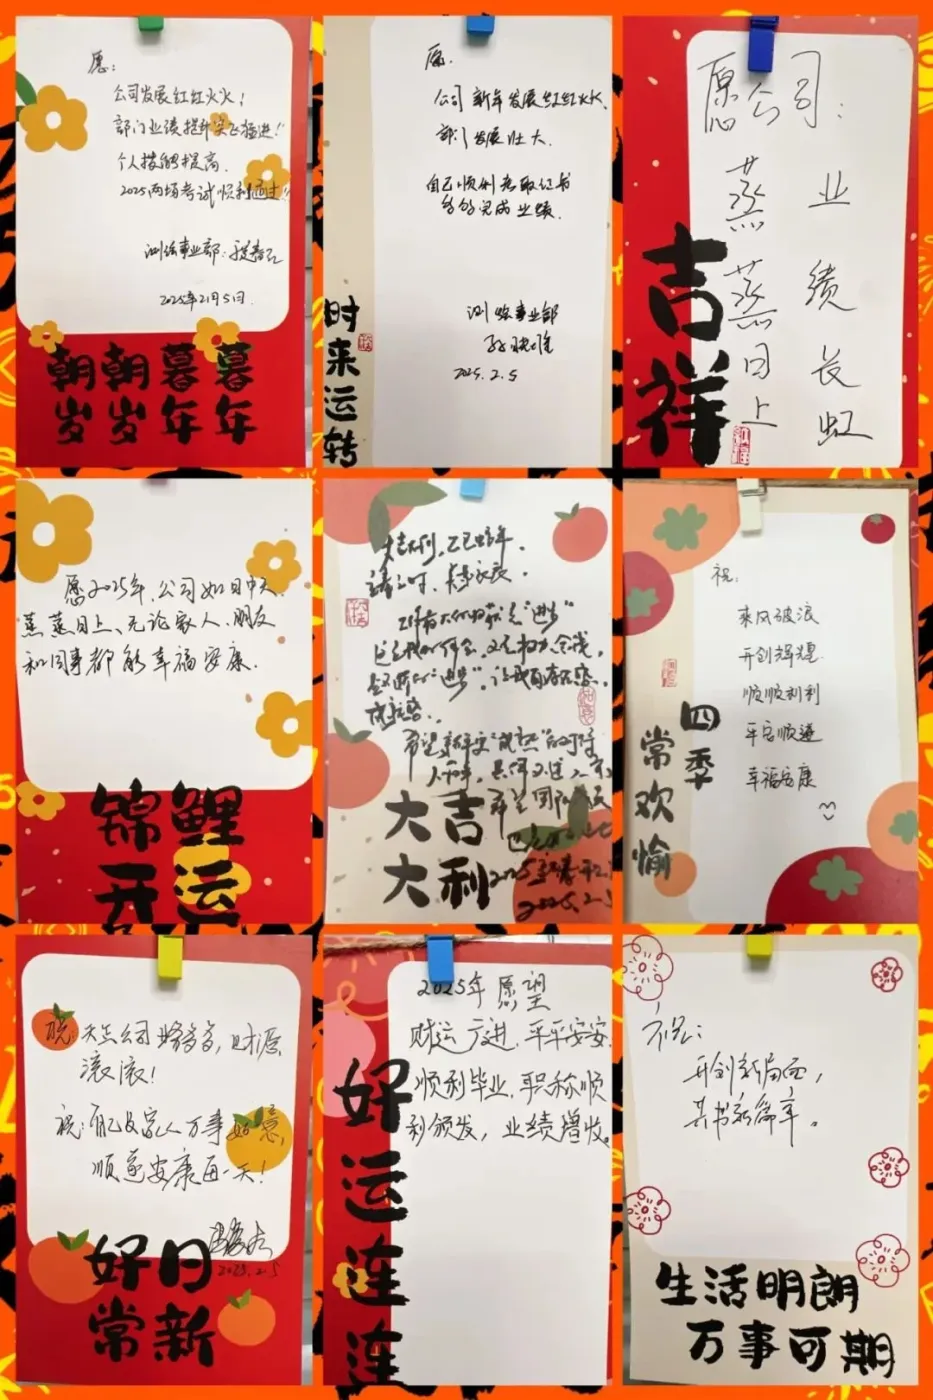 愿:
公司发展红红火火!
部门业绩提升突飞猛进!!
个人技能提高.
2025两场考试顺利通过!!
测绘事业部:
2025年2月5日.
朝朝暮暮
岁岁年年
愿.
公司 新年发展红红火火.
部门发展壮大.
自己顺利考取证书
多多完成业绩.
测绘事业部
2025.2.5
时来运转
愿公司:
业绩长虹
蒸蒸日上
吉祥
愿2025年,公司如日中天,
蒸蒸日上、无论家人、朋友
和同事都能幸福安康.
锦鲤
开运
大吉大利,乙巳蛇年.
希望团队
大吉
大利
2025.2.5
祝:
乘风破浪
开创辉煌
顺顺利利
平安顺遂
幸福安康
四季
常欢愉
祝:大正公司业务多多,财源
滚滚!
祝:自己及家人万事如意,
顺遂安康每一天!
2025.2.5
好日
常新
2025年愿望
财运广进,平平安安.
顺利毕业,职称顺
利颁发,业绩增收。
好运连连
开创新局面,
共书新篇章。
生活明朗
万事可期